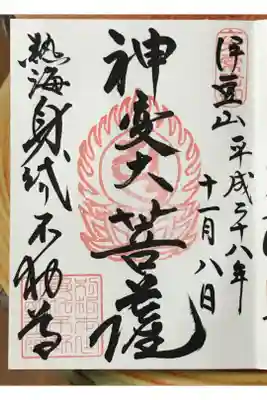 伊豆山 平成二十八年
十一月八日
神変大菩薩
熱海身代不動尊